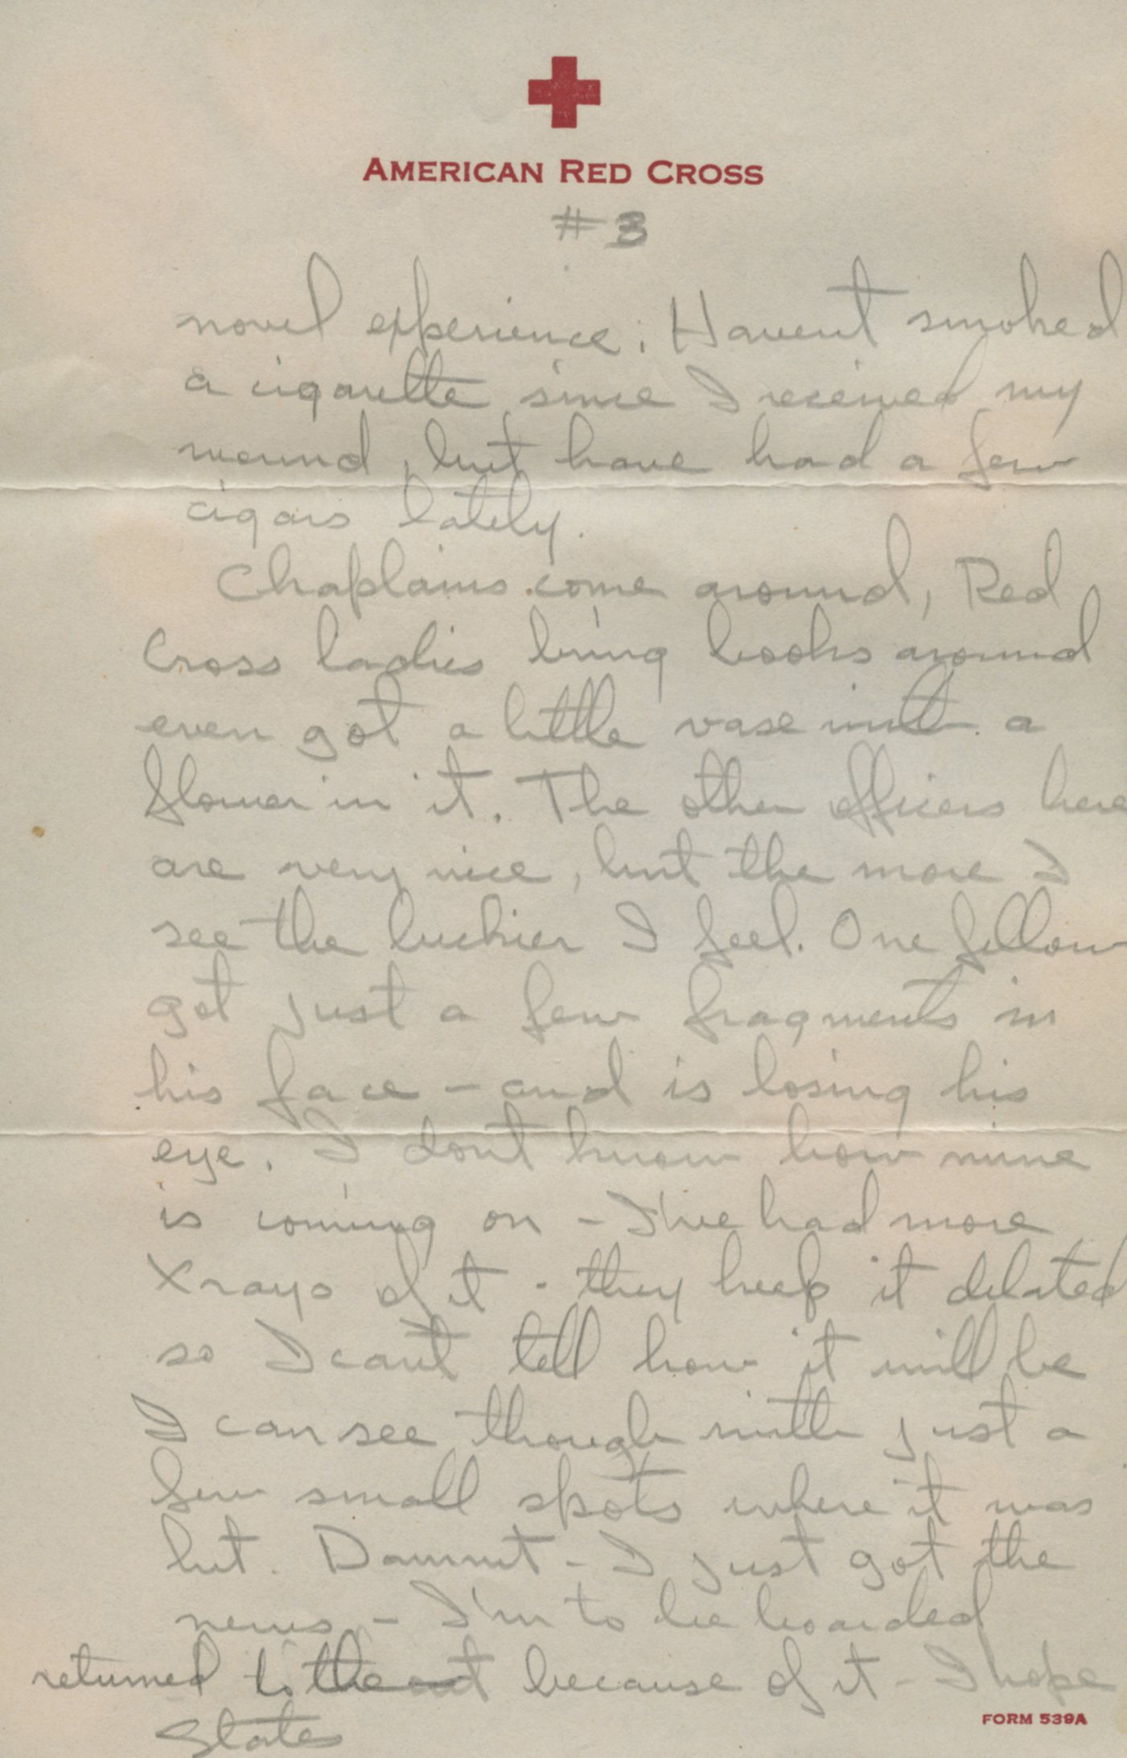 AMERICAN RED CROSS
# 3
novel experience; Havent smoked
a cigarette since I received my
wound, but have had a few
cigars lately.
Chaplains come around, Red
Cross ladies bring books around
even got a little vase with a
flower in it. The other officers here
are very nice, but the more I
see the luckier I feel. One fellow
got just a few fragments in
his face - and is losing his
eye. I dont know how mine
is coming on - I've had more
Xrays of it - they keep it dilated
so I cant tell how it will be
I can see though with just a
few small spots where it was
hit. Dammit - I just got the
news - I'm to be boarded
returned to the because of it - I hope
States
FORM 539A